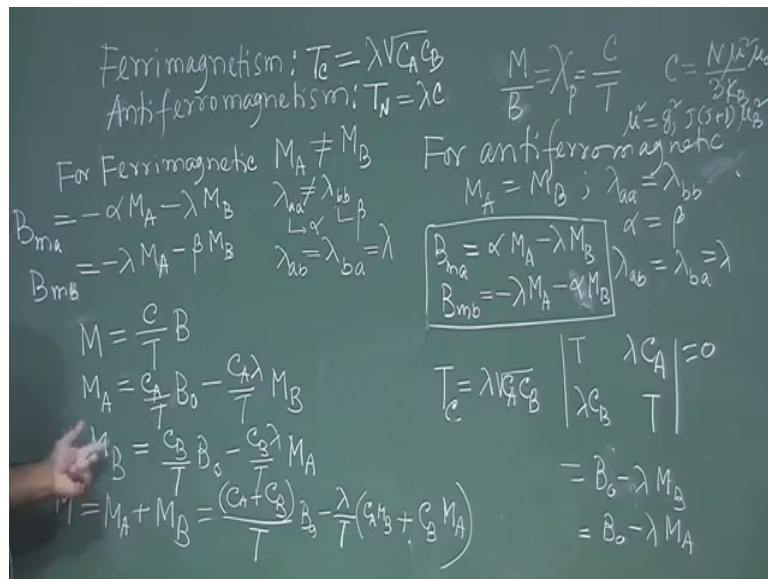 Ferrimagnetism: T_C = λ√C_A C_B
Antiferromagnetism: T_N = λC
M/B = χ_p = C/T
C = Nμ²μ₀/3k_B
μ² = g² J(J+1) μ_B²
For Ferrimagnetic M_A ≠ M_B
λ_aa ≠ λ_bb
↳ α ↳ β
λ_ab = λ_ba = λ
B_ma = -α M_A - λ M_B
B_mB = -λ M_A - β M_B
For antiferromagnetic
M_A = M_B ; λ_aa = λ_bb
α = β
λ_ab = λ_ba = λ
B_ma = α M_A - λ M_B
B_mb = -λ M_A - α M_B
M = C/T B
M_A = C_A/T B_0 - C_A λ/T M_B
M_B = C_B/T B_0 - C_B λ/T M_A
M = M_A + M_B = (C_A + C_B)/T B_0 - λ/T (C_A M_B + C_B M_A)
T_C = λ√C_A C_B
| T λC_A |
| λC_B T | = 0
= B_0 - λ M_B
= B_0 - λ M_A